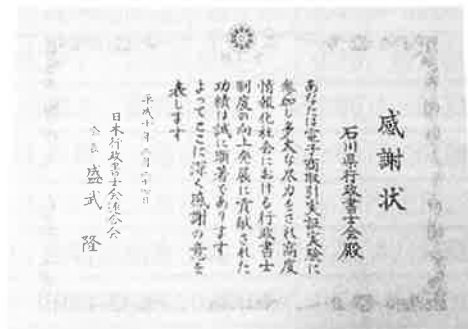 感謝状
石川県行政書士会殿
あなたは電子商取引実証実験に
参加し多大な尽力をされ高度
情報化社会における行政書士
制度の向上発展に貢献された
功績は誠に顕著であります
よってここに深く感謝の意を
表します
平成十年
日本行政書士会連合会
会長 盛武 隆